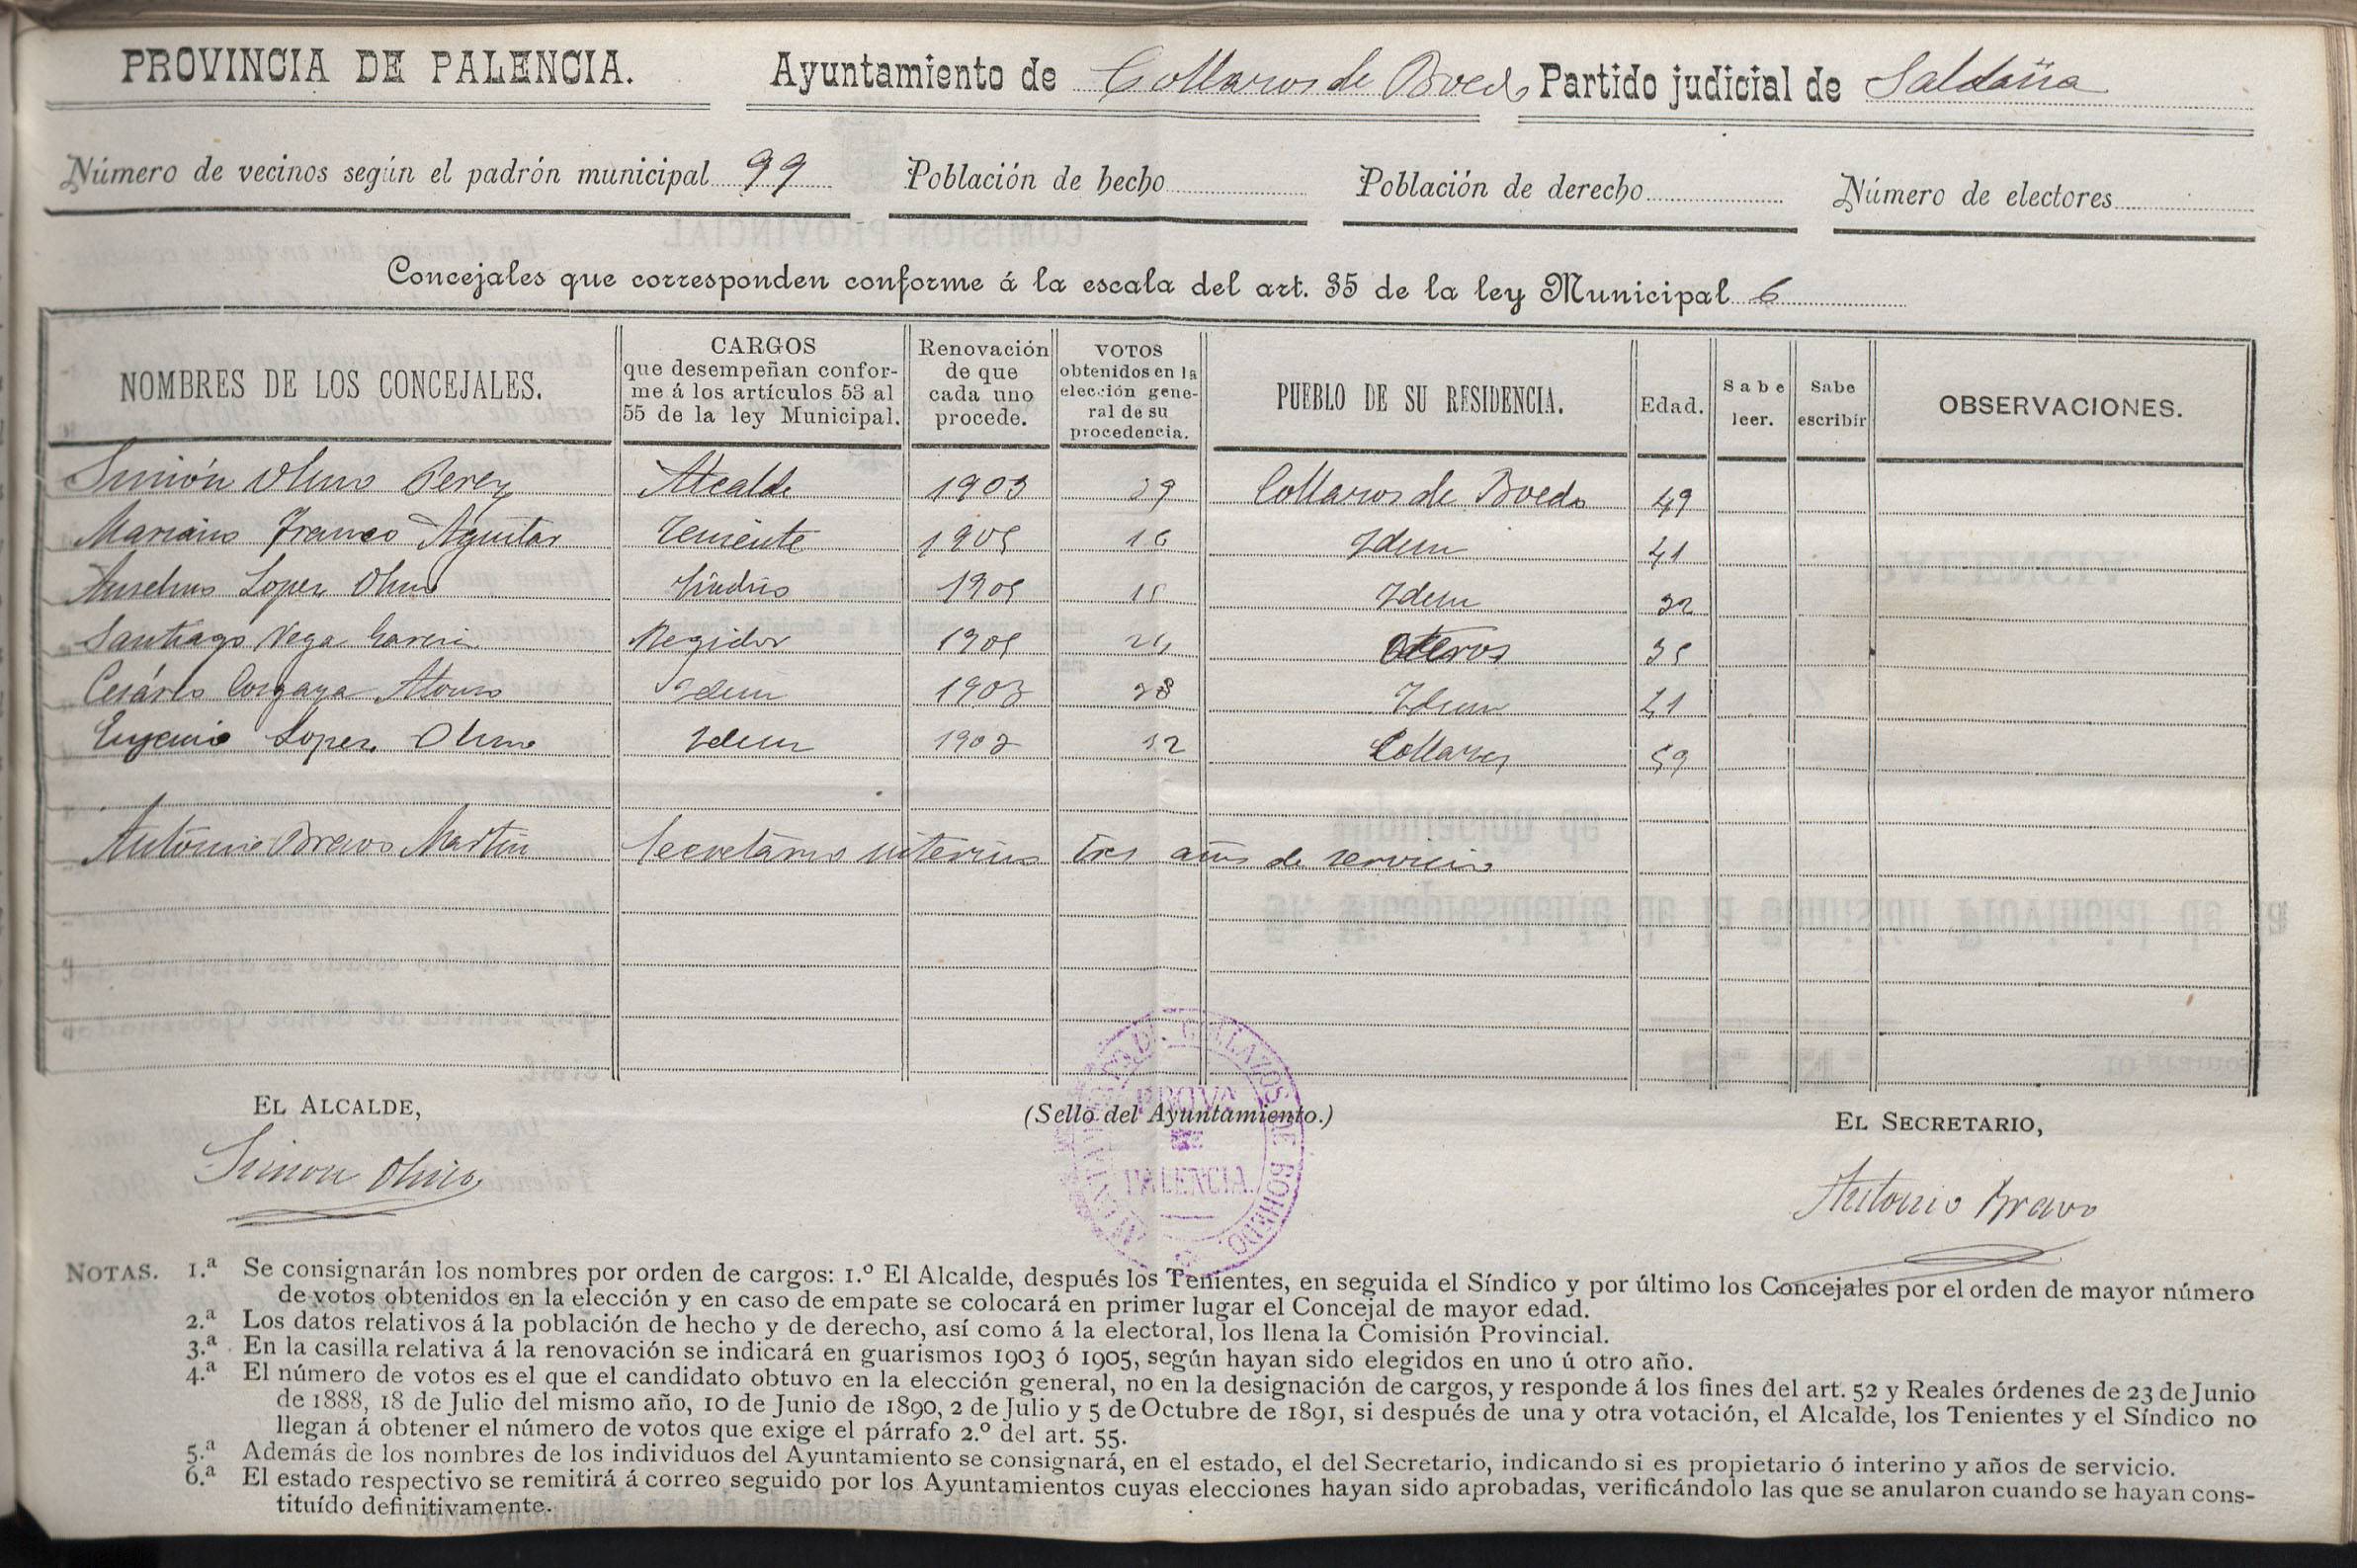 PROVINCIA DE PALENCIA. Ayuntamiento de Collazos de Boedo Partido judicial de Saldaña
Número de vecinos según el padrón municipal 99 Población de hecho Población de derecho Número de electores
Concejales que corresponden conforme á la escala del art. 35 de la ley Municipal 6
NOMBRES DE LOS CONCEJALES. CARGOS que desempeñan conforme á los artículos 53 al 55 de la ley Municipal. Renovación de que cada uno procede. VOTOS obtenidos en la elección general de su procedencia. PUEBLO DE SU RESIDENCIA. Edad. Sabe leer. Sabe escribir OBSERVACIONES.
Simón Olmo Perez Alcalde 1903 Collazos de Boedo 49
Mariano Franco Aguilar Teniente 1905 16 Idem 41
Anselmo Lopez Olmo Síndico 1905 15 Idem
Santiago Vega Garcia Regidor 1905 Oteros 35
Cesáreo Alonso Idem 1903 28 Idem 41
Eugenio Lopez Olmo Idem 1903 Collazos 59
Antonio Bravo Martin Secretario interino tres años de servicio
EL ALCALDE, (Sello del Ayuntamiento.) EL SECRETARIO,
COLLAZOS DE BOHEDO. PROVA PALENCIA.
Simon Olmo Antonio Bravo
NOTAS. 1.ª Se consignarán los nombres por orden de cargos: 1.º El Alcalde, después los Tenientes, en seguida el Síndico y por último los Concejales por el orden de mayor número
de votos obtenidos en la elección y en caso de empate se colocará en primer lugar el Concejal de mayor edad.
2.ª Los datos relativos á la población de hecho y de derecho, así como á la electoral, los llena la Comisión Provincial.
3.ª En la casilla relativa á la renovación se indicará en guarismos 1903 ó 1905, según hayan sido elegidos en uno ú otro año.
4.ª El número de votos es el que el candidato obtuvo en la elección general, no en la designación de cargos, y responde á los fines del art. 52 y Reales órdenes de 23 de Junio
de 1888, 18 de Julio del mismo año, 10 de Junio de 1890, 2 de Julio y 5 de Octubre de 1891, si después de una y otra votación, el Alcalde, los Tenientes y el Síndico no
llegan á obtener el número de votos que exige el párrafo 2.º del art. 55.
5.ª Además de los nombres de los individuos del Ayuntamiento se consignará, en el estado, el del Secretario, indicando si es propietario ó interino y años de servicio.
6.ª El estado respectivo se remitirá á correo seguido por los Ayuntamientos cuyas elecciones hayan sido aprobadas, verificándolo las que se anularon cuando se hayan cons-
tituído definitivamente.